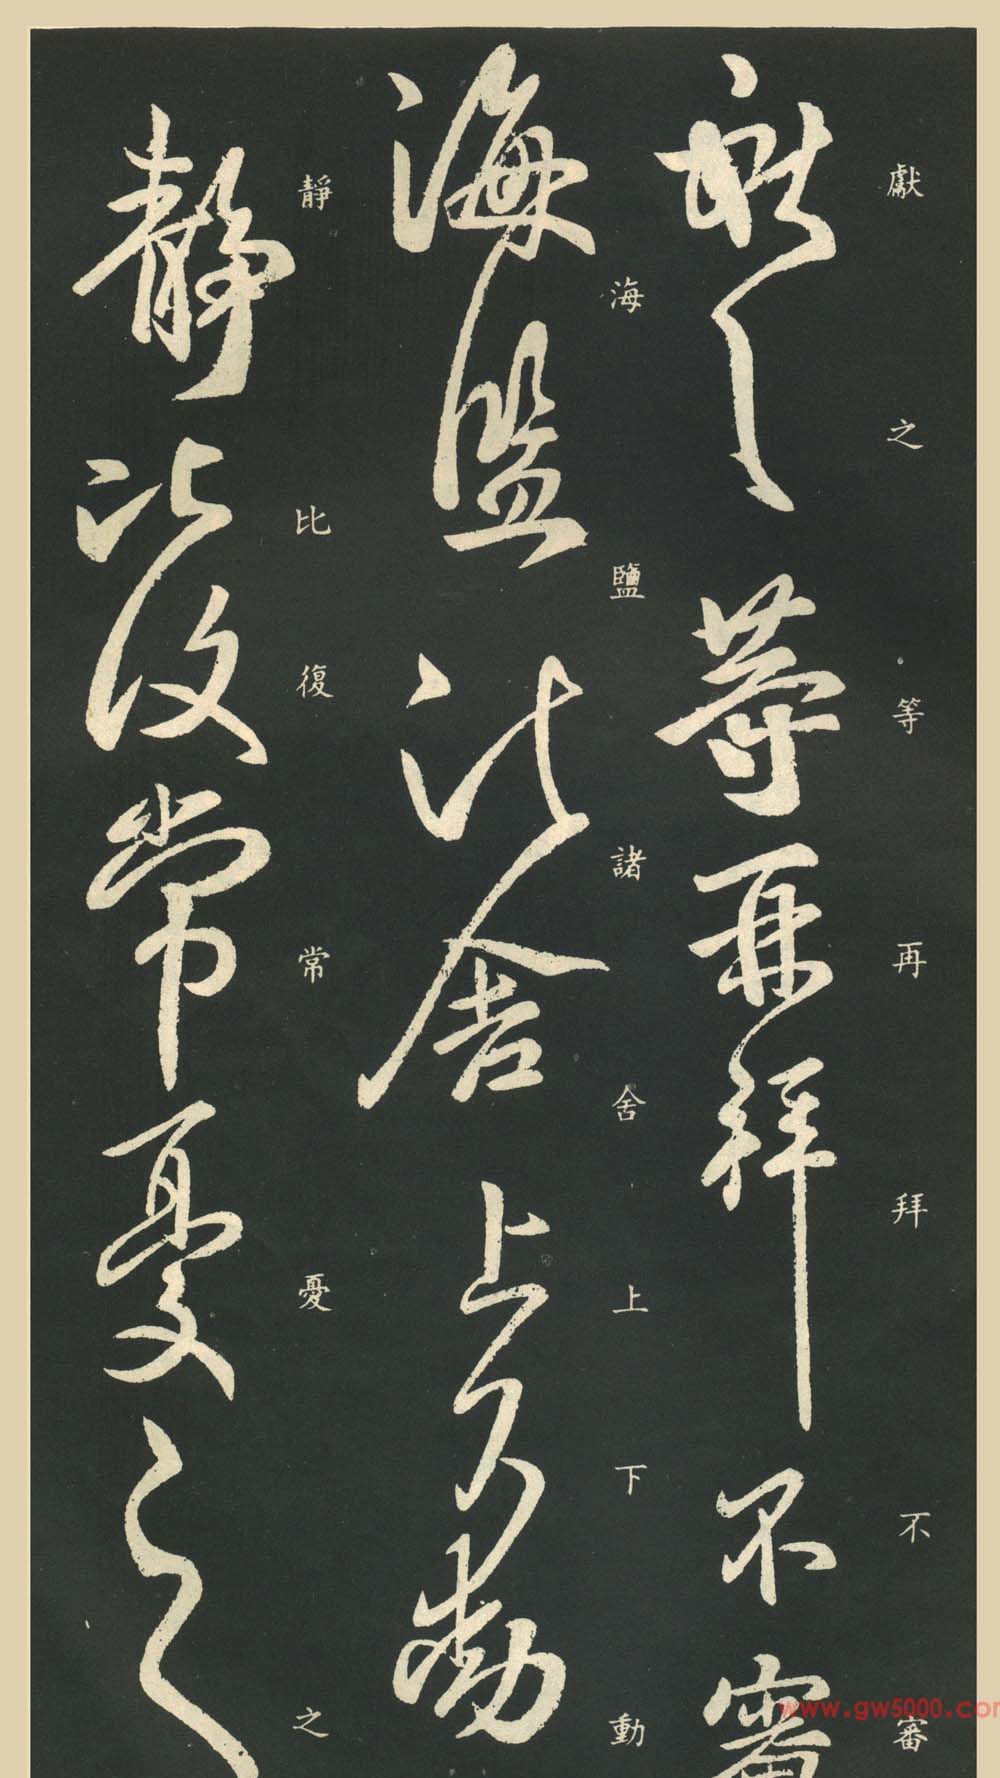 獻之等再拜不審
海鹽諸舍上下動
靜比復常憂之
獻之等再拜不審
海鹽諸舍上下動
靜比復常憂之
www.gw5000.com